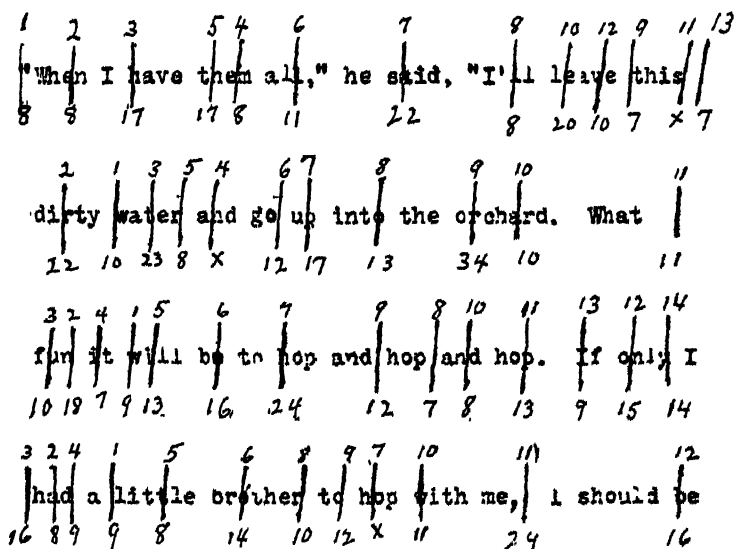 1 2 3 5 4 6 7 8 10 12 9 11 13
"When I have them all," he said, "I'll leave this
8 8 17 17 8 11 22 8 20 10 7 x 7
2 1 3 5 4 6 7 8 9 10 11
dirty water and go up into the orchard. What
12 10 23 8 x 12 17 13 34 10 11
3 2 4 1 5 6 7 9 8 10 11 13 12 14
fun it will be to hop and hop and hop. If only I
10 18 7 9 13 16 24 12 7 8 13 9 15 14
3 2 4 1 5 6 8 9 7 10 11 12
had a little brother to hop with me, I should be
16 8 9 9 8 14 10 12 x 11 24 16